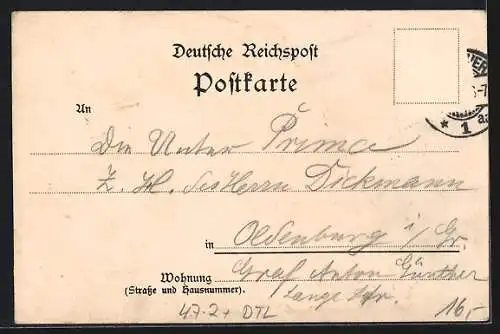 Deutsche Reichspost
Postkarte
An
Die Unter Prima
Z. H. des Herrn Dickmann
in Oldenburg i/Gr.
Wohnung Graf Anton Günther
(Straße und Hausnummer). Lange Str.
1
47-2+ DTL
16,-